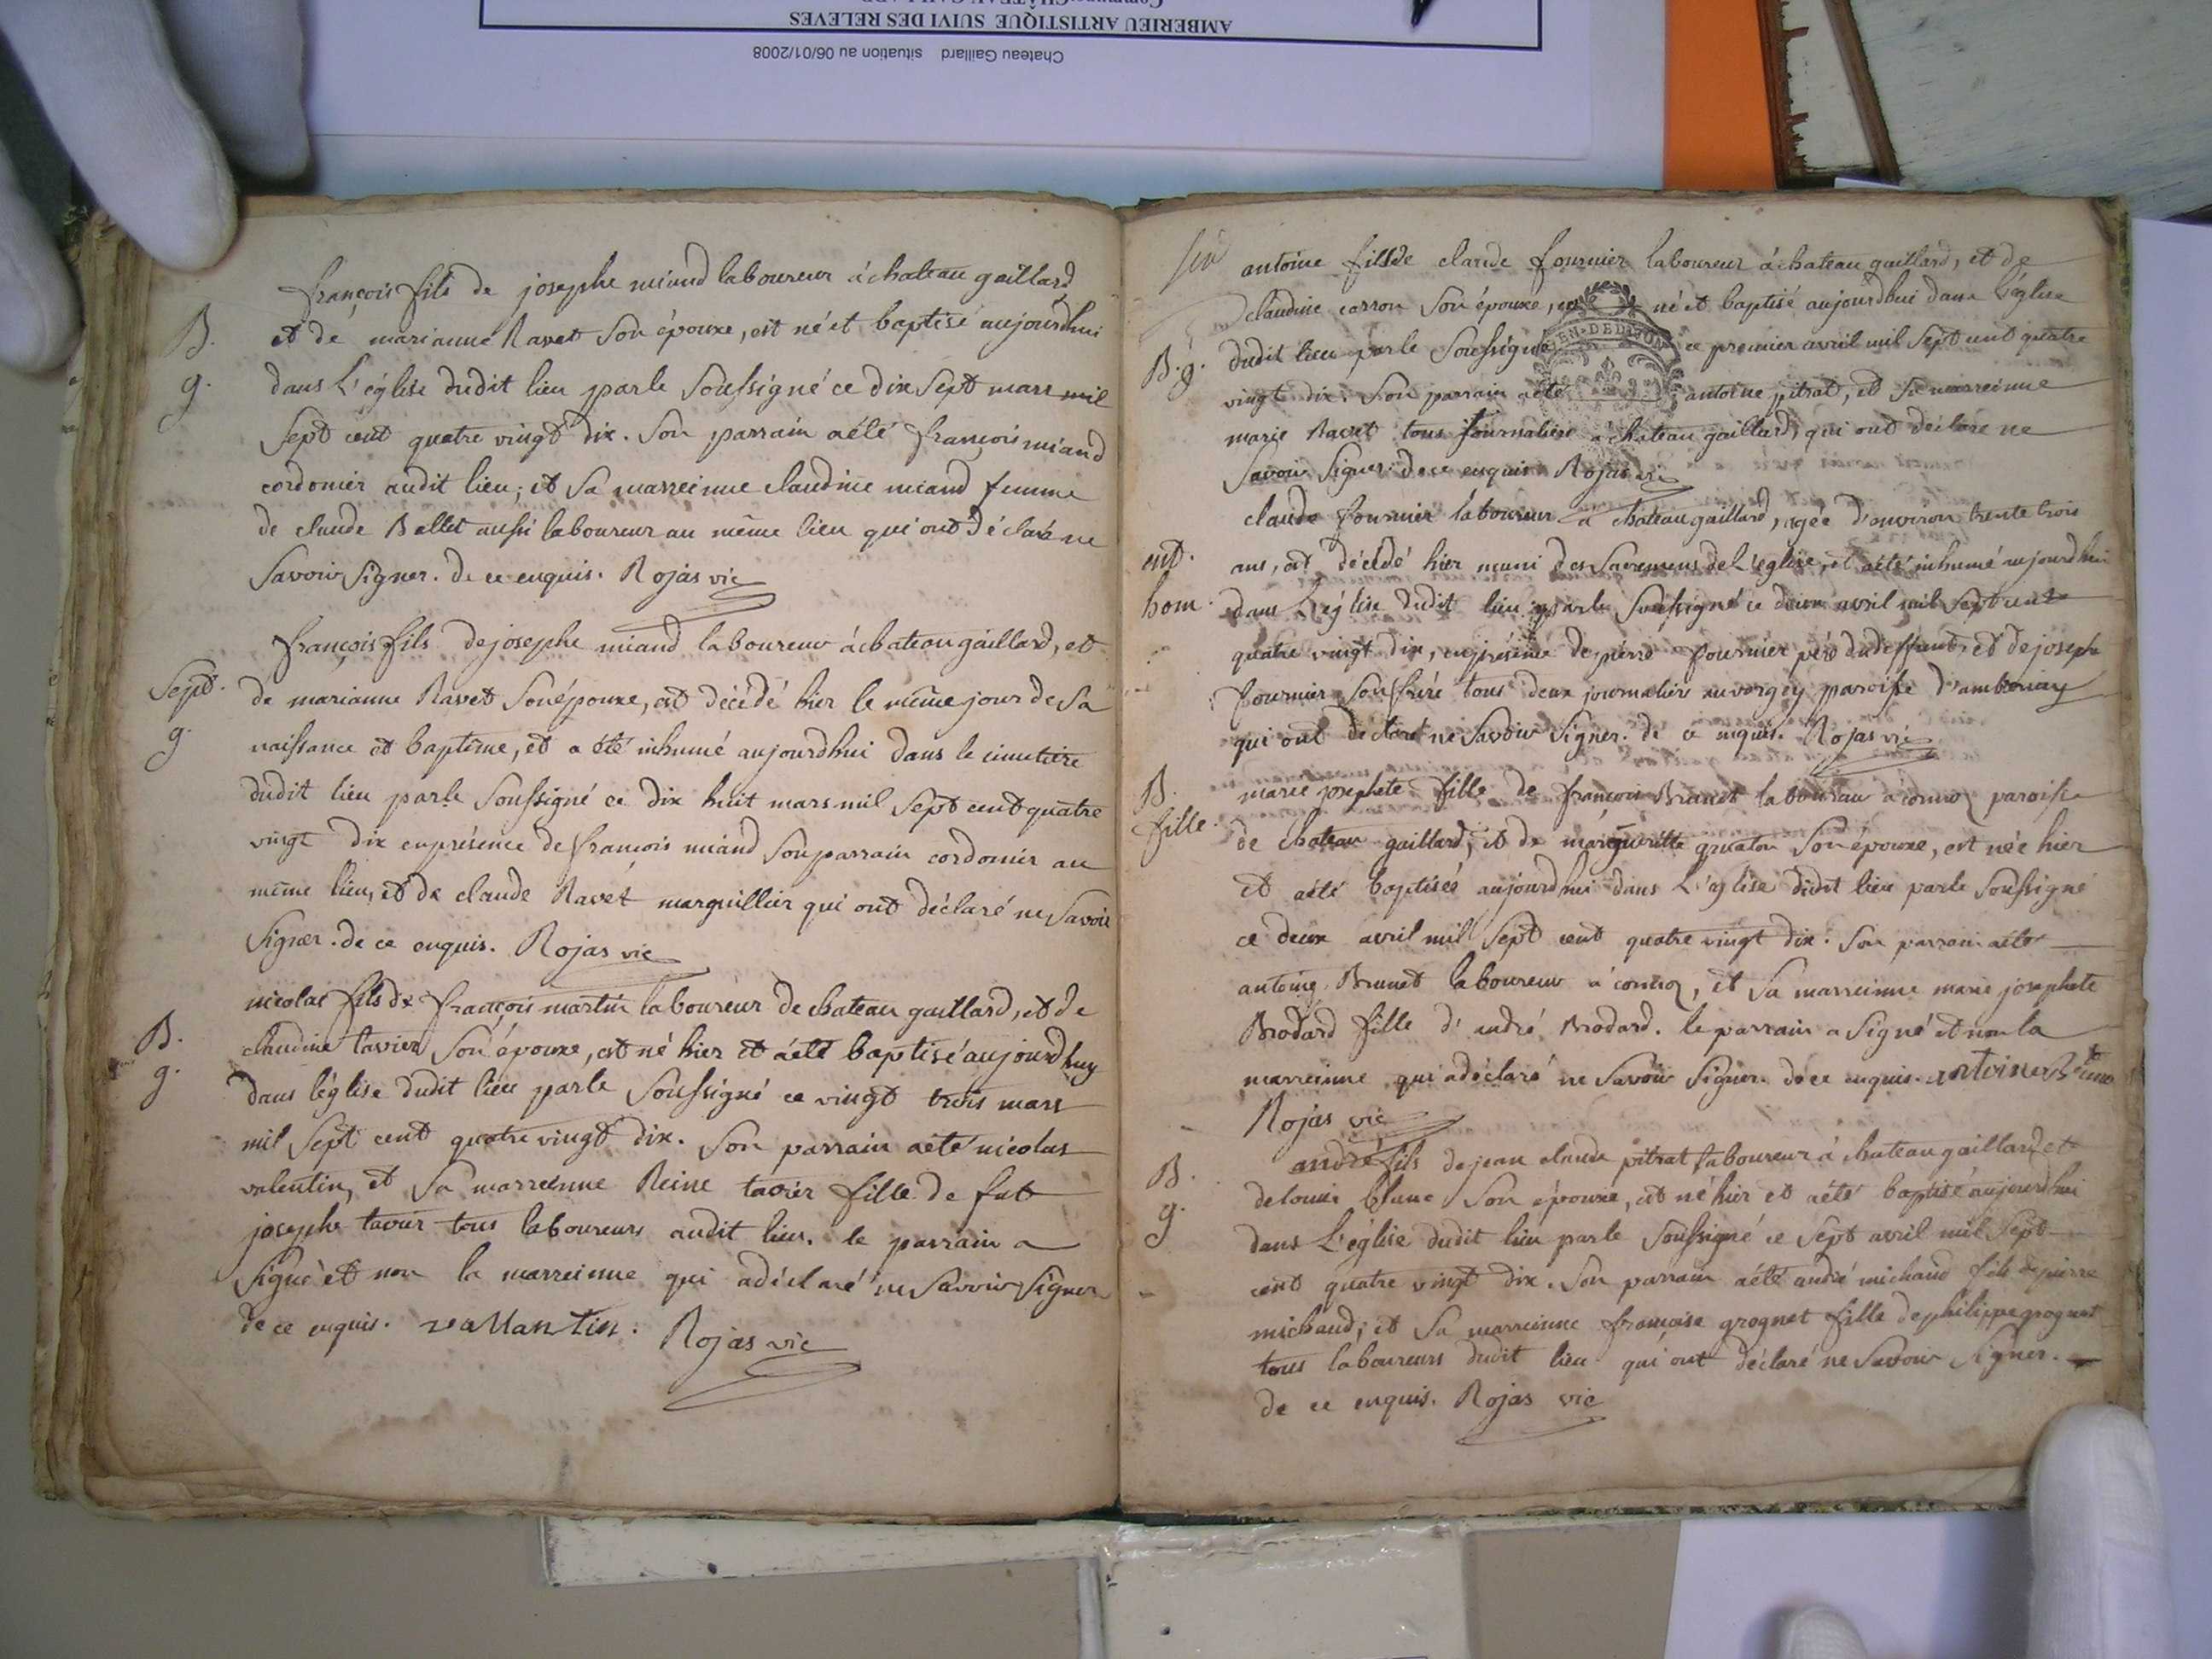 Chateau Gaillard situation au 06/01/2008
AMBERIEU ARTISTIQUE SUIVI DES RELEVES
françois fils de josephe miand laboureur à chateau gaillard
B. et de marianne Ravet son épouse, est né et baptisé aujourdhui
g. dans L'église dudit lieu par le soussigné ce dix sept mars mil
sept cent quatre vingt dix. son parrain a été françois miand
cordonier audit lieu; et sa marreinne claudine miand femme
de claude Ballet aussi laboureur au même lieu qui ont déclaré ne
savoir signer. de ce enquis. Rojas vic
françois fils de josephe miand laboureur à chateau gaillard, et
Sept. de marianne Ravet son épouse, est décédé hier le même jour de sa
g. naissance et baptême, et a été inhumé aujourdhui dans le cimetiere
dudit lieu par le soussigné ce dix huit mars mil sept cent quatre
vingt dix en présence de françois miand son parrain cordonier au
même lieu, et de claude Ravet marguillier qui ont déclaré ne savoir
signer. de ce enquis. Rojas vic
nicolas fils de françois martin laboureur de chateau gaillard, et de
B. claudine tavier son épouse, est né hier et a été baptisé aujourdhuy
g. dans l'église dudit lieu par le soussigné ce vingt trois mars
mil sept cent quatre vingt dix. son parrain a été nicolas
valentin, et sa marreinne Reine tavier fille de fut
josephe tavier tous laboureurs audit lieu. le parrain a
signé et non la marreinne qui a déclaré ne savoir signer
de ce enquis. vallantin. Rojas vic
antoine fils de claude fournier laboureur à chateau gaillard, et de
claudine carron son épouse, né et baptisé aujourdhui dans l'église
B. g. dudit lieu par le soussigné ce premier avril mil sept cent quatre
vingt dix. son parrain a été antoine pitrat, et sa marreinne
marie Ravet tous journaliers à chateau gaillard, qui ont déclaré ne
savoir signer. de ce enquis Rojas vic
claude fournier laboureur à chateau gaillard, agée d'environ trente trois
ent. ans, est décédé hier muni des sacremens de L'église, et a été inhumé aujourdhui
hom. dans L'église dudit lieu par le soussigné ce deux avril mil sept cent
quatre vingt dix, en présence de pierre fournier père du deffunt, et de joseph
fournier son frère tous deux journaliers au vorgey paroisse d'ambronay
qui ont déclaré ne savoir signer. de ce enquis. Rojas vic
B. marie josephete fille de françois Brunet laboureur à paroisse
fille. de chateau gaillard, et de margueritte son épouse, est née hier
et a été baptisée aujourdhui dans L'église dudit lieu par le soussigné
ce deux avril mil sept cent quatre vingt dix. son parrain a été
antoine Brunet laboureur à, et sa marreinne marie josephete
Brodard fille d'andré Brodard. le parrain a signé et non la
marreinne qui a déclaré ne savoir signer. de ce enquis. antoine
Rojas vic
andré fils de jean claude pitrat laboureur à chateau gaillard et
B. de louise blanc son épouse, est né hier et a été baptisé aujourdhui
g. dans L'église dudit lieu par le soussigné ce sept avril mil sept
cent quatre vingt dix. son parrain a été andré michaud fils de pierre
michaud; et sa marreinne françoise grognet fille de philippe grognet
tous laboureurs dudit lieu qui ont déclaré ne savoir signer.
de ce enquis. Rojas vic